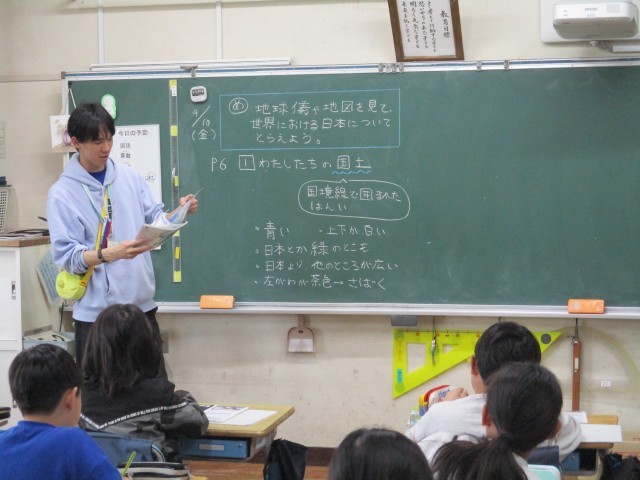 教育目標
今日の予定
国語
算数
4/18
(金)
め 地球儀や地図を見て、
世界における日本について
とらえよう。
P6 1 わたしたちの国土
国境線で囲まれた
はんい
・青い ・上下が白い
・日本とか緑のとこも
・日本より他のところが広い
・左がわが茶色→さばく